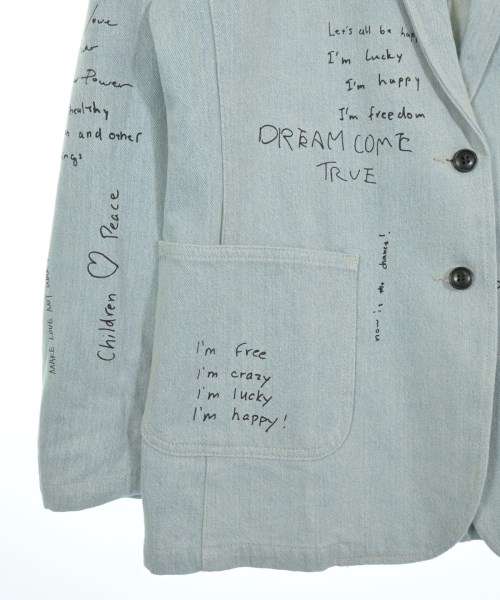 love
Power
healthy
and other
Children ♡ Peace
MAKE LOVE NOT
Let's all be
I'm lucky
I'm happy
I'm freedom
DREAM COME
TRUE
now is the chance!
I'm free
I'm crazy
I'm lucky
I'm happy!